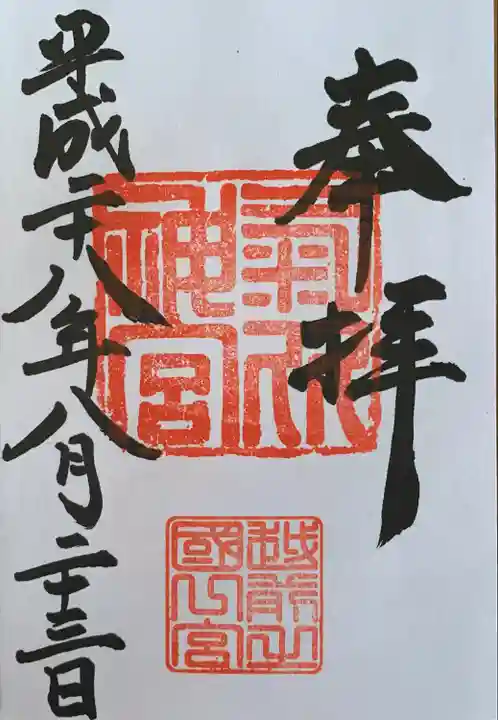 奉拝
氣比神宮
越前之
國一宮
平成二十八年八月二十三日